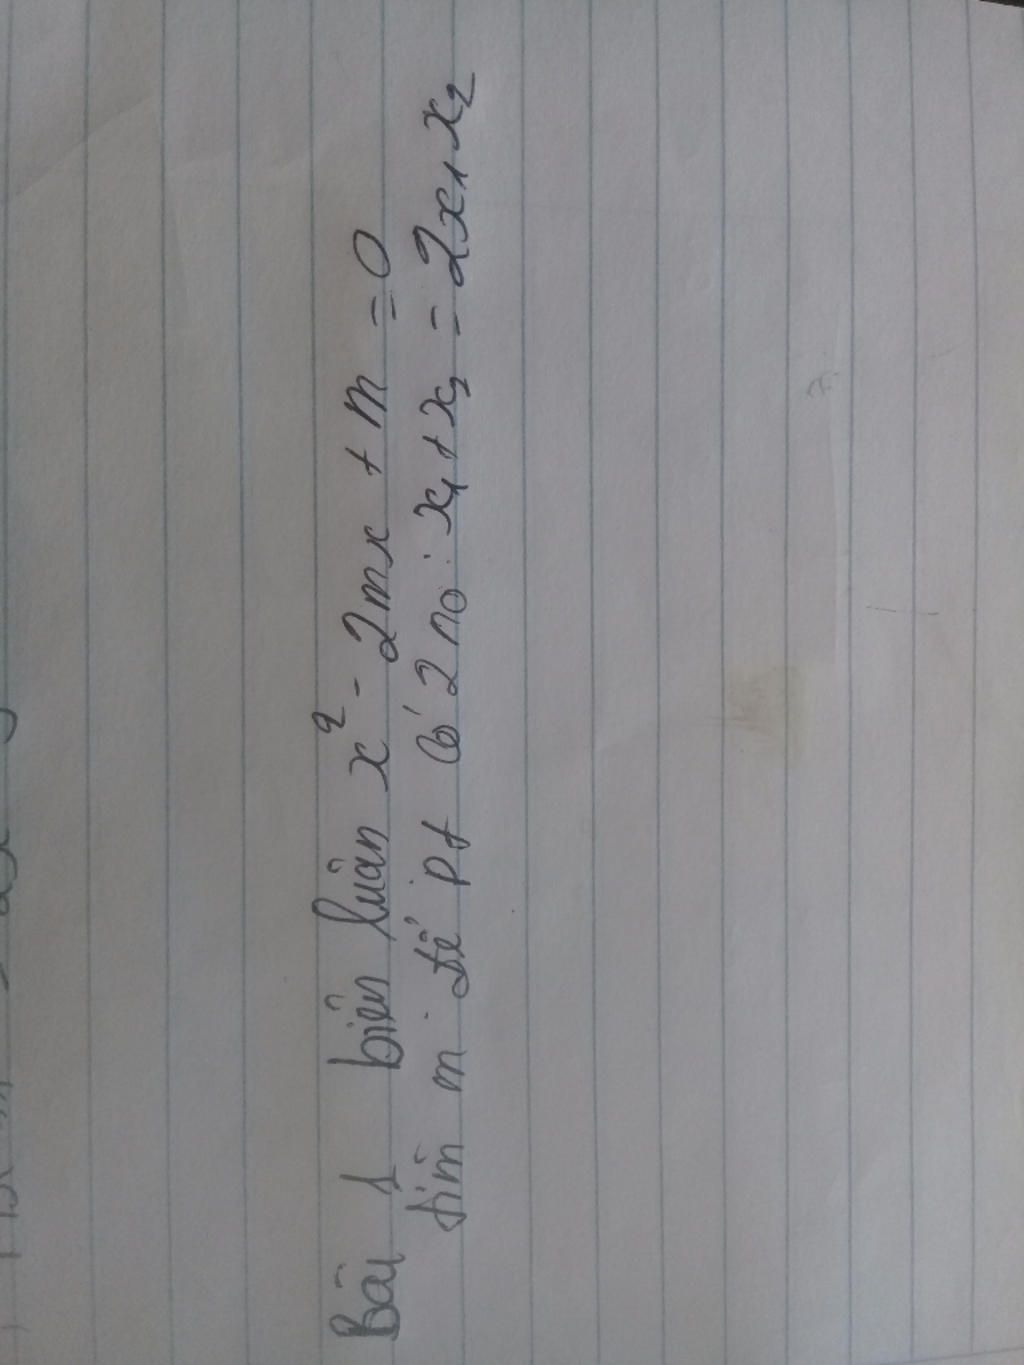 Bài 1 biện luận x² - 2mx + m = 0
tìm m để pt có 2 no : x₁ + x₂ = 2x₁x₂